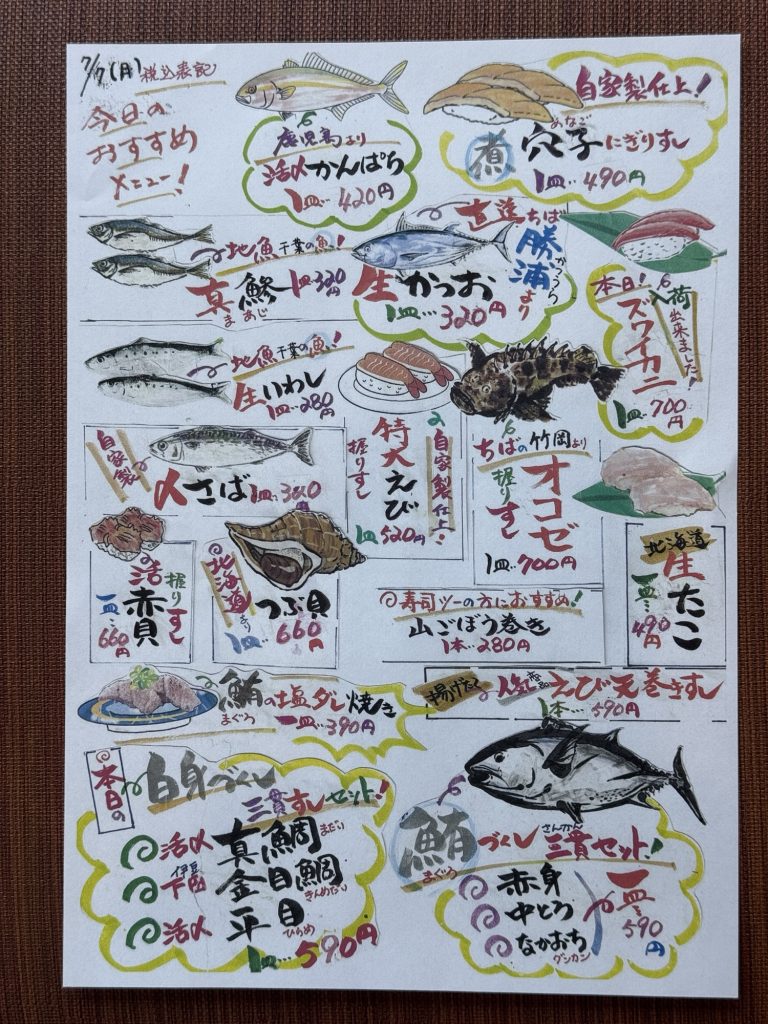 7/7(月) 税込表記
今日の
おすすめ
メニュー!
鹿児島より
活〆かんぱち
1皿…420円
自家製仕上!
あなご
煮 穴子にぎりすし
1皿…490円
地魚 千葉の魚!
真鯵 1皿320円
まあじ
直送ちば
勝浦より
かつうら
生かつお
1皿…320円
本日!
入荷出来ました!
ズワイカニ
1皿…700円
地魚 千葉の魚!
生いわし
1皿…280円
自家製
〆さば 1皿…360円
自家製仕上!
特大えび
握りすし
1皿520円
ちばの竹岡より
オコゼ
握りすし
1皿…700円
握りすし
活赤貝
一皿…660円
北海道より
つぶ貝
1皿…660円
北海道
生たこ
一皿…490円
寿司ツーの方におすすめ!
山ごぼう巻き
1本…280円
鮪の塩ダレ焼き
まぐろ
一皿…390円
揚げたて
人気商品 えび天巻きすし
1本…590円
本日の
白身づくし
三貫すしセット!
活〆 真鯛 まだい
伊豆
下田 金目鯛 きんめだい
活〆 平目 ひらめ
1皿…590円
さんかん
鮪づくし三貫セット!
まぐろ
赤身
中とろ
なかおち
グンカン
一皿…590円